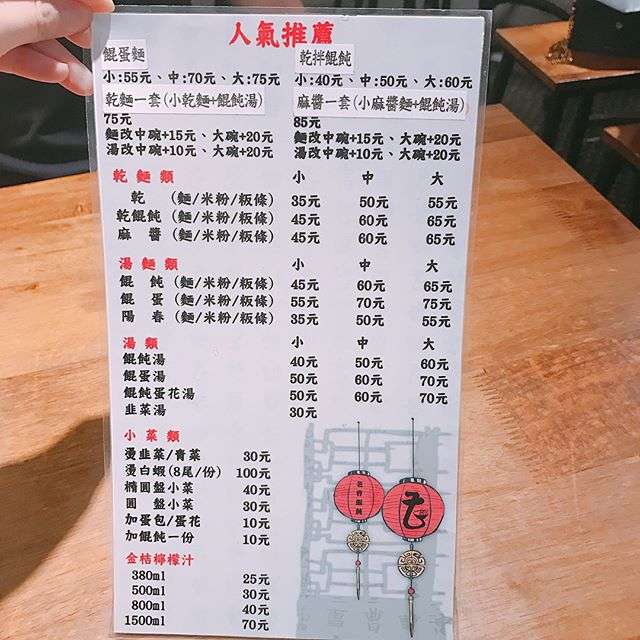 人氣推薦
餛蛋麵 乾拌餛飩
小:55元、中:70元、大:75元 小:40元、中:50元、大:60元
乾麵一套(小乾麵+餛飩湯) 麻醬一套(小麻醬麵+餛飩湯)
75元 85元
麵改中碗+15元、大碗+20元 麵改中碗+15元、大碗+20元
湯改中碗+10元、大碗+20元 湯改中碗+10元、大碗+20元
乾麵類 小 中 大
乾 (麵/米粉/粄條) 35元 50元 55元
乾餛飩 (麵/米粉/粄條) 45元 60元 65元
麻醬 (麵/米粉/粄條) 45元 60元 65元
湯麵類 小 中 大
餛飩 (麵/米粉/粄條) 45元 60元 65元
餛蛋 (麵/米粉/粄條) 55元 70元 75元
陽春 (麵/米粉/粄條) 35元 50元 55元
湯類 小 中 大
餛飩湯 40元 50元 60元
餛蛋湯 50元 60元 70元
餛飩蛋花湯 50元 60元 70元
韭菜湯 30元
小菜類
燙韭菜/青菜 30元
燙白蝦(8尾/份) 100元
橢圓盤小菜 40元
圓盤小菜 30元
加蛋包/蛋花 10元
加餛飩一份 10元
金桔檸檬汁
380ml 25元
500ml 30元
800ml 40元
1500ml 70元